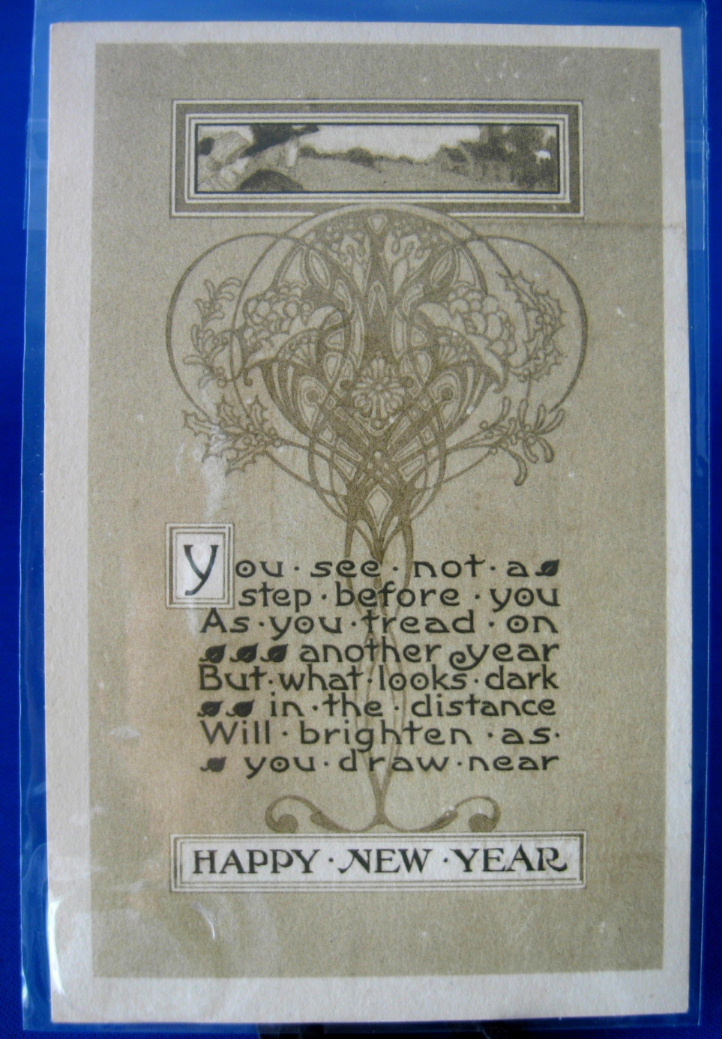 You · see · not · a
step · before · you
As · you · tread · on
another year
But · what · looks · dark
in · the · distance
Will · brighten · as ·
you · draw · near
HAPPY · NEW · YEAR